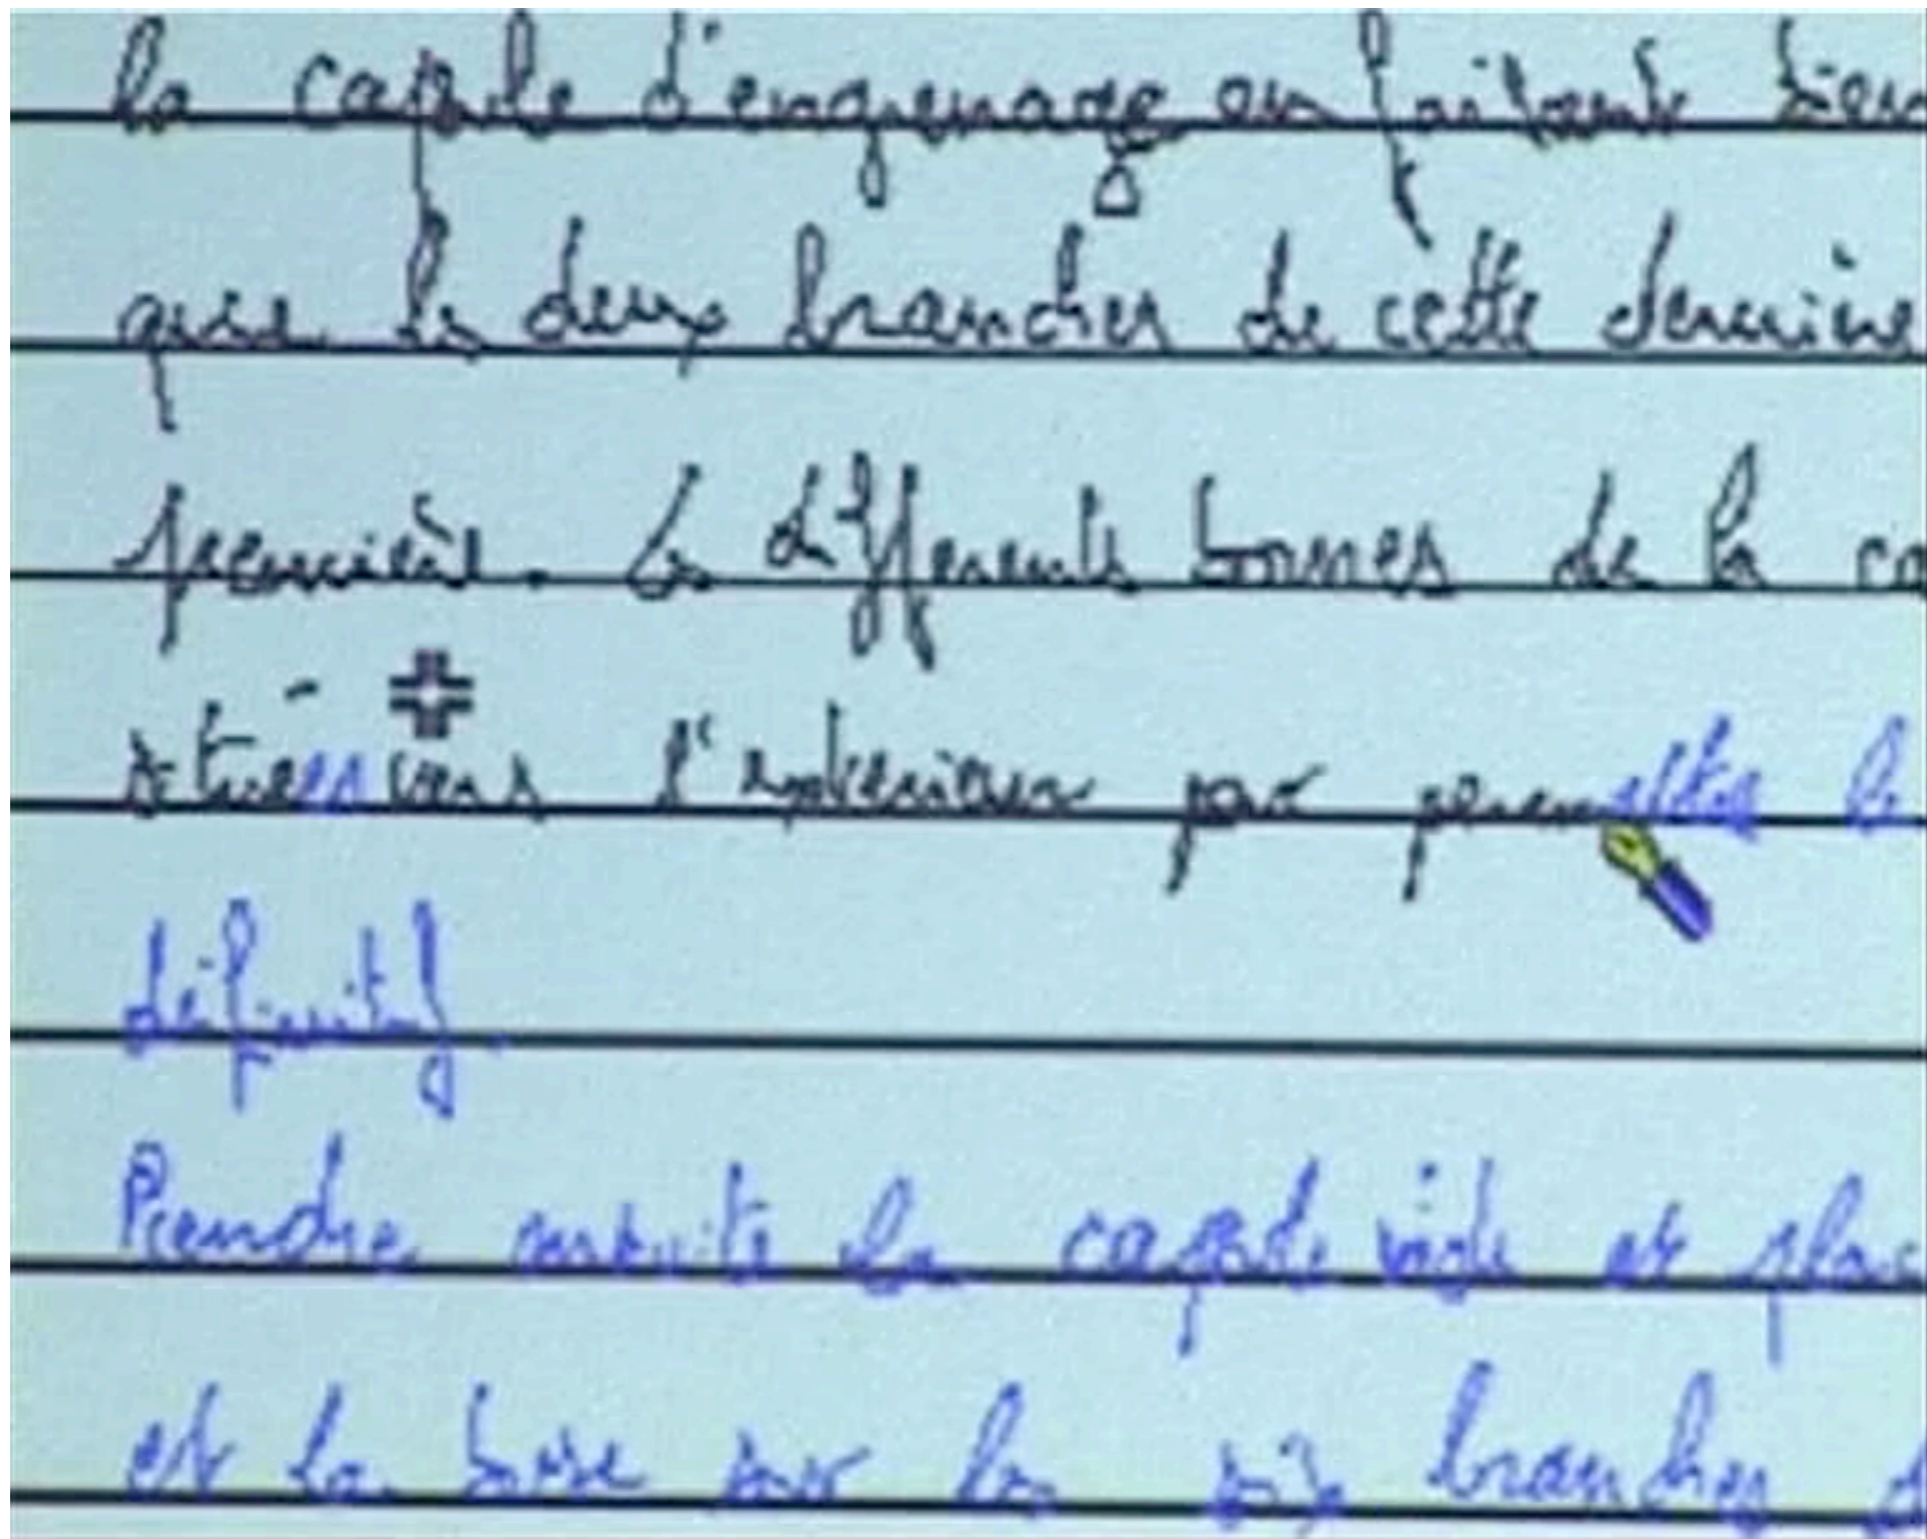 la capsule d'engrenage en faisant bien
que les deux branches de cette dernière
première. Les différents bornes de la
situées vers l'extérieur par permettre le
définitif.
Prendre ensuite la capsule vide et
et la base sur les six branches